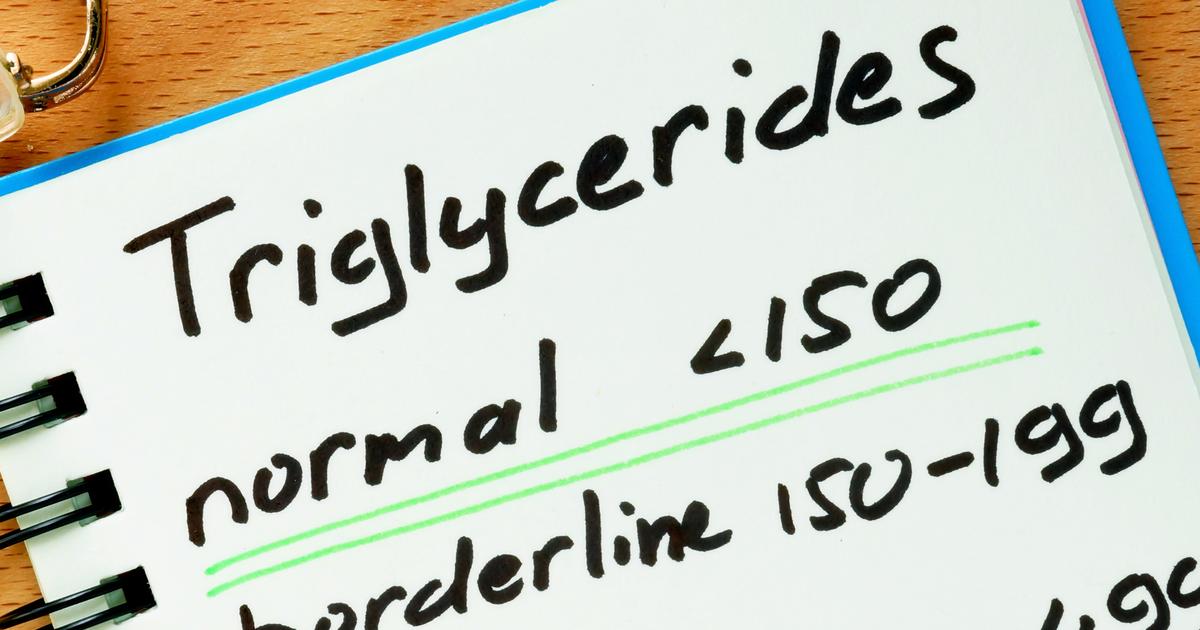 Triglycerides
normal <150
borderline 150-199